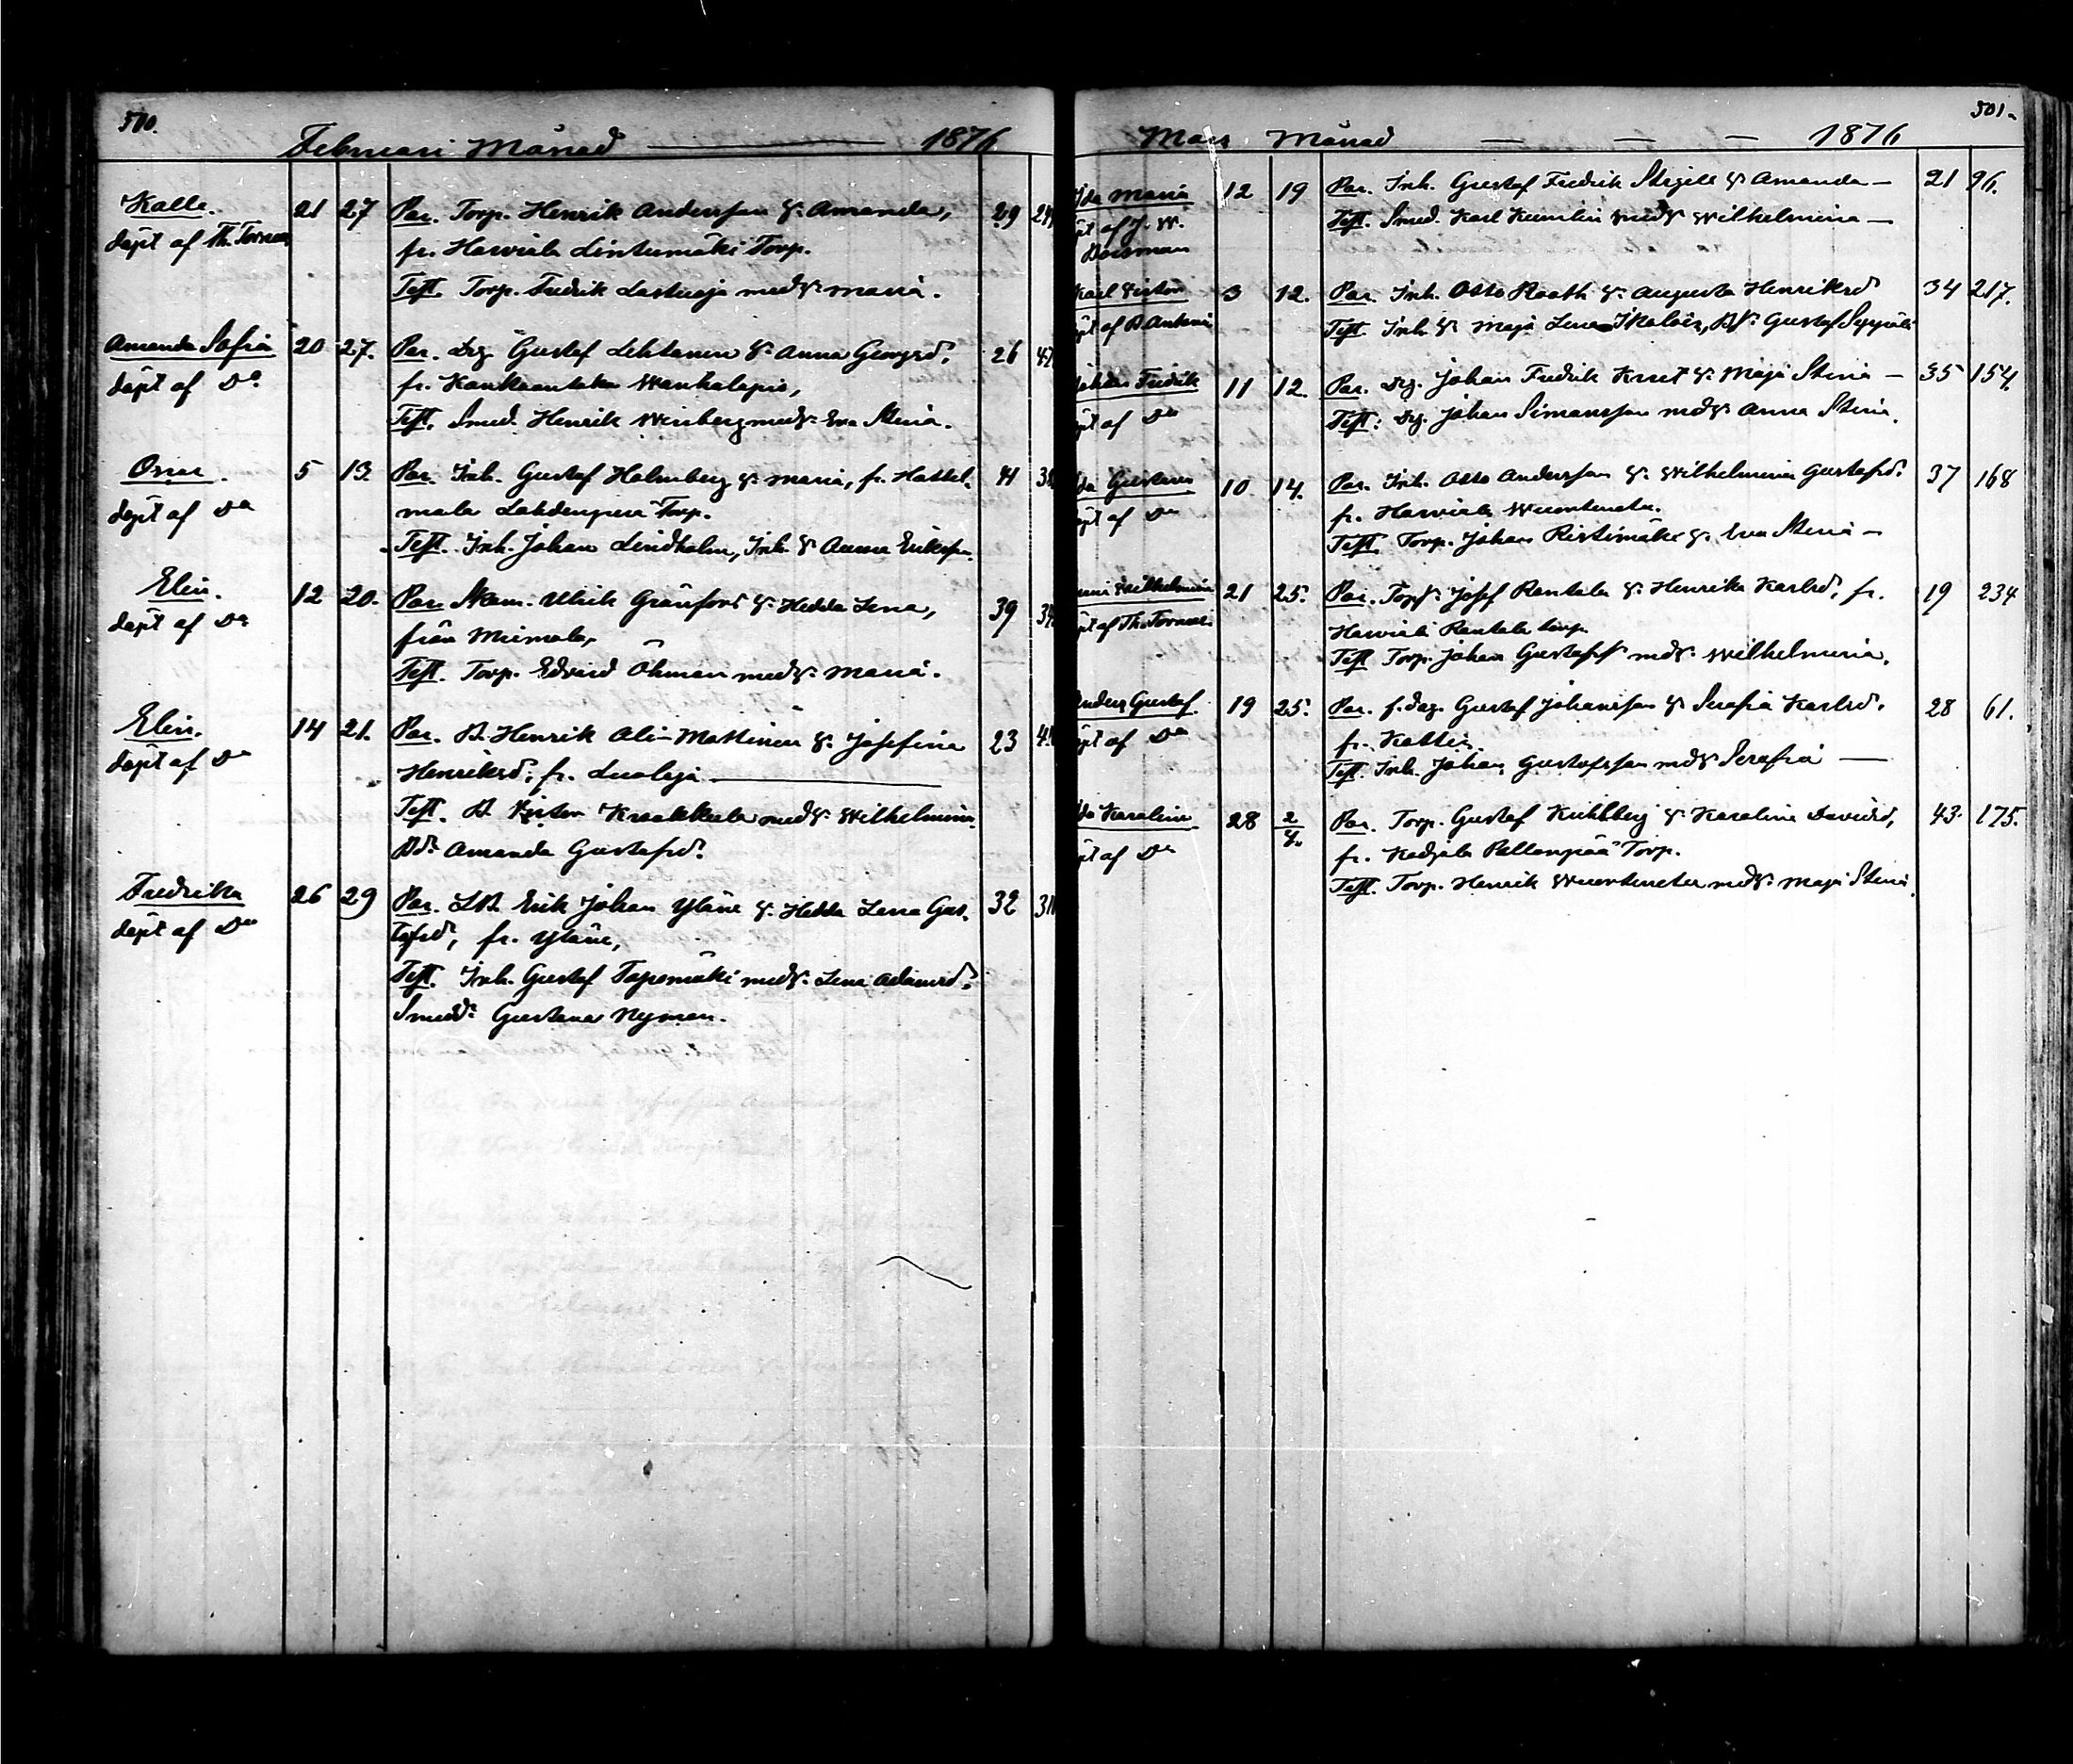 500.
Februari Månad 1876
Kalle. 21 27 Par. Torp. Henrik Andersson & Amanda, 29
döpt af Th. Torneus fr. Harviala Lintumäki Torp.
Test. Torp. Fredrik Lastuoja med h. Maria.
Amanda Sofia 20 27. Par. Drg. Gustaf Lehtonen & Anna Georgsd. 26
döpt af Do fr. Wanhalapio,
Test. Smed. Henrik Winberg med h. Eva Stina.
Oscar. 5 13. Par. Inh. Gustaf Holmberg & Maria, fr. Hattel- 41
döpt af Do mala Lahdenperä Torp.
Test. Inh. Johan Lindholm, Inh. h. Anna Eriksson
Elin. 12 20. Par. Ulrik Gränfors & Hedda Lena, 39
döpt af Do från Miemala,
Test. Torp. Edvard Öhman med h. Maria.
Elin. 14 21. Par. B. Henrik Ali-Mattinen & Josefina 23
döpt af Do Henriksd. fr. Luoloja
Test. B. Wiktor Kraakkula med h. Wilhelmina
Bd. Amanda Gustafsd.
Fredrika 26 29 Par. LB. Erik Johan Yläne & Hedda Lena Gus- 32
döpt af Do tafsd, fr. Yläne,
Test. Inh. Gustaf Tapiomäki med h. Lena Adamsd.
Smedd. Gustava Nyman.
501.
Mars Månad 1876
Ida Maria 12 19 Par. Inh. Gustaf Fredrik Stigell & Amanda 21 96.
döpt af J. W. Test. Smed. Karl Kumlin med h. Wilhelmina
Boisman
Karl Victor 3 12. Par. Inh. Otto Rooth & Augusta Henriksd 34 217.
döpt af Test. Inh. h. Maja Lena Gustaf Seppälä
Johan Fredik 11 12. Par. Drg. Johan Fredrik Knut & Maja Stina 35 154.
döpt af Do Test: Drg. Johan Simonsson med h. Anna Stina.
Ida Gustava 10 14. Par. Inh. Otto Andersson & Wilhelmina Gustafsd. 37 168
döpt af Do fr. Harviala Wuorteneta.
Test. Torp. Johan Ristimäki & Eva Stina
Wilhelmina 21 25. Par. Josef Rantala & Henrika Karlsd. fr. 19 234
döpt af Th. Torneus. Harviala Rantala torp.
Test Torp. Johan Gustafss med h. Wilhelmina.
Anders Gustaf 19 25. Par. f. drg. Gustaf Johansson & Serafia Karlsd. 28 61.
döpt af Do fr. Katti
Test. Inh. Johan Gustafsson med h. Serafia
Ida Karolina 28 2/4. Par. Torp. Gustaf Kuhlberg & Karolina Davidsd, 43. 175.
döpt af Do fr. Torp.
Test. Torp. Henrik Wuorteneta med h. Maja Stina.